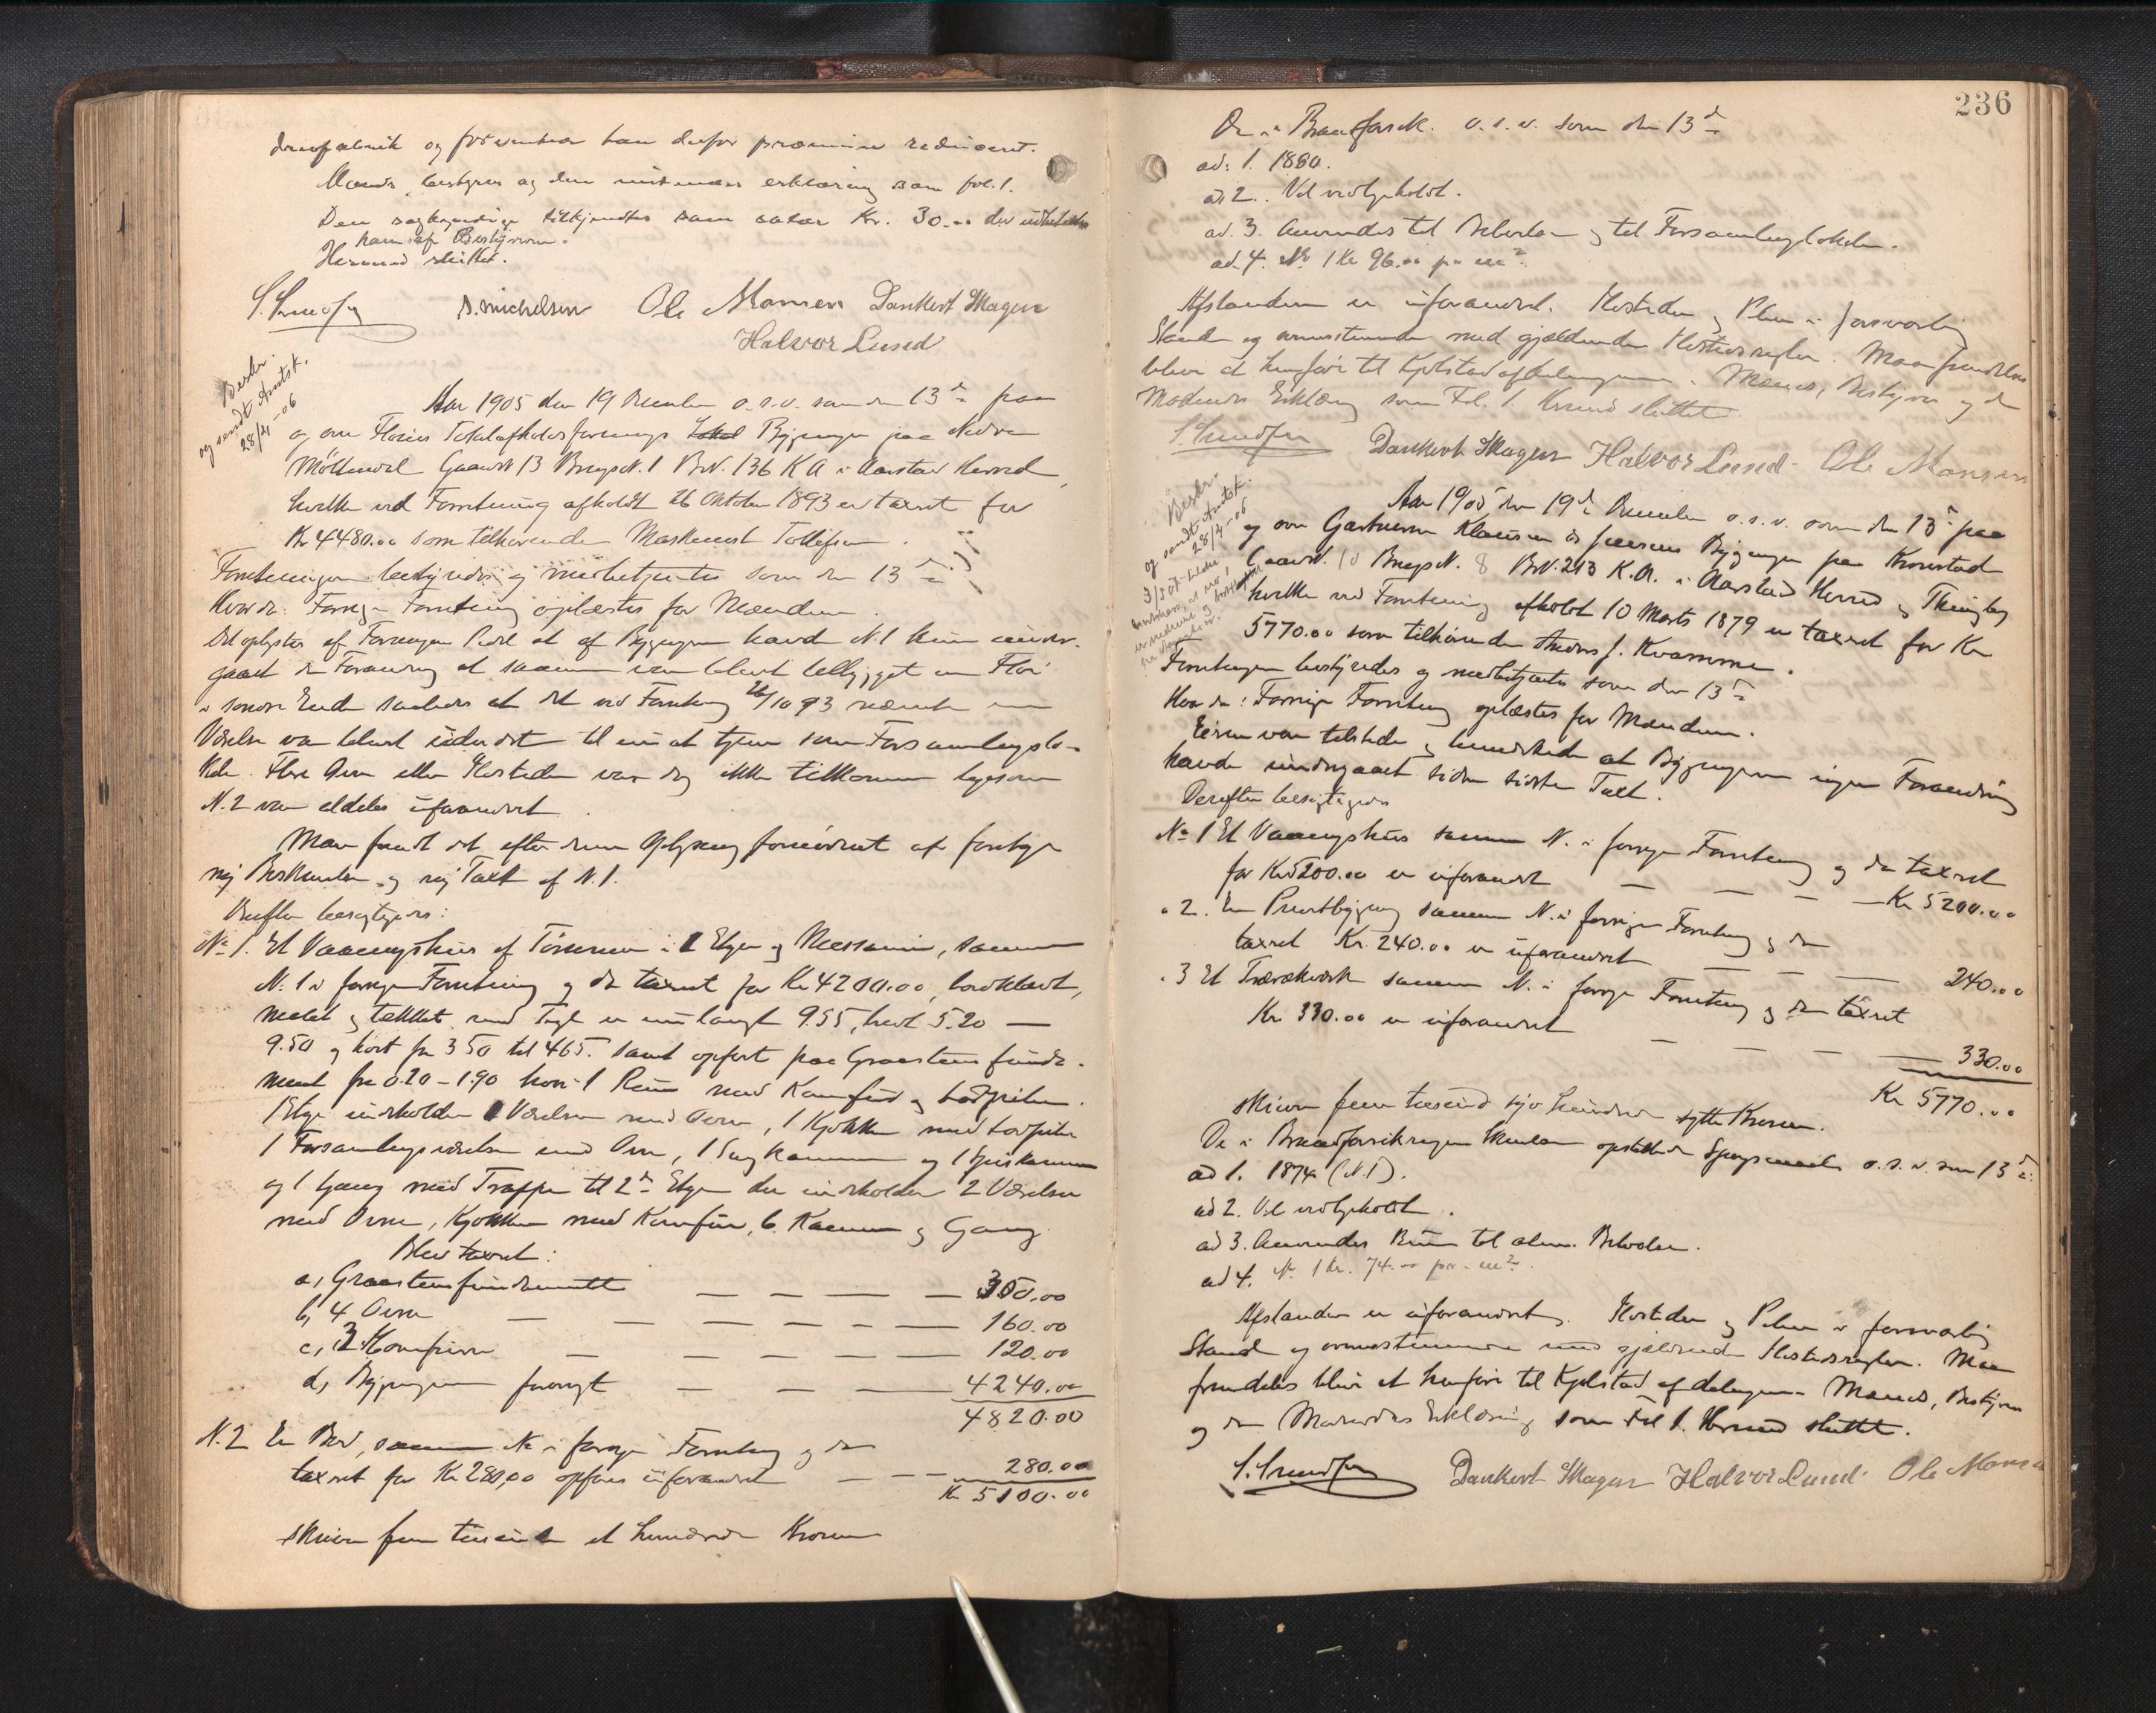 og forventer han derfor præmien reduceret.
Mænds, bestyrer og den mødendes erklæring som fol. 1.
Den sagkyndige tilkjendtes som salær Kr. 30.00 der udbetaltes
ham af Bestyreren.
Hermed sluttet.
D. Michelsen Ole Monsen Dankert Skagen
Halvor Lund
Beskr.
og sendt Amtsk.
28/4-06
Aar 1905 den 19 December o.s.v. som den 13de paa
og over Florida Totalafholdsforenings Lokal Bygninger paa Nedre
Møllendal Gaards N. 13 Brugs N. 1 B.N. 136 K A i Aarstad Herred,
hvilke ved Forretning afholdt 26 Oktober 1893 er taxeret for
Kr 4480.00 som tilhørende Maskinist Tollefsen.
Forretningen bestyredes og medbetjentes som den 13de
Hvorda: Forrige Forretning oplæstes for Mændene.
Det oplystes af Foreningen at af Bygningerne havde N. 1 kun undergaaet
den Forandring at samme var blevet tilbygget en Fløi
i søndre Ende saaledes at det ved Forretning 26/10 93 nævnte
Værelse var blevet udvidet til nu at tjene som Forsamlingslokale.
Flere Ovne eller Ildsteder var dog ikke tilkommet ligesom
N. 2 var aldeles uforandret.
Man fandt det efter denne Oplysning fornødent at foretage
ny Beskrivelse og ny Taxt af N. 1.
Derefter besigtigedes:
No 1. Et Vaaningshus af Tømmer i 2 Etager og Messanin, samme
N. 1 i forrige Forretning og da taxeret for Kr 4200.00, bordklædt,
malet og tækket med Tagl er nu langt 9.55, bredt 5.20 —
9.50 og høit fra 3.50 til 4.65. samt opført paa Graastensfundament
fra 0.20 – 1.90 hvori 1 Rum med Komfur og
1 Etage indeholder Værelser med Ovn, 1 Kjøkken med
1 Forsamlingsværelse med Ovn, 1 og 1 Spiskammer
og 1 Gang med Trappe til 2den Etage der indeholder 2 Værelser
med Ovne, Kjøkken med Komfur, Kammer og Gang
Blev taxeret:
a, Graastensfundamentet — — — — 300.00
b, 4 Ovne — — — — — — 160.00
c, 3 Komfurer — — — — — 120.00
d, Bygningen forøvrigt — — — 4240.00
4820.00
N. 2 En Bod, samme N. i forrige Forretning og da
taxeret for Kr 280,00 opføres uforandret — — — 280.00
Kr 5100.00
skriver fem tusinde et hundrede Kroner
236
De i Brandforsik. o.s.v. som den 13de
ad. 1. 1880.
ad 2. Vel vedligeholdt.
ad. 3. Anvendes til Beboelse og til Forsamlingslokale.
ad. 4. N. 1 Kr 96.00 pr m2.
Afstandene er uforandret. Ildsteder og Piber i forsvarlig
Stand og overensstemmende med gjældende Ildstedsregler. Man fremdeles
bliver at henføre til Kjøbstadafdelingen. Mænds, Bestyrer og den
Mødendes Erklæring som Fol. 1. Hermed sluttet.
Dankert Skagen Halvor Lund Ole Monsen
Beskr.
og sendt Amtsk.
28/4-06
Aar 1905 den 19de December o.s.v. som den 13de paa
og over Gartnerne Klausen & Bygninger paa Kronstad
Gaards N. 10 Brugs N. 8 B.N. 213 K.A. i Aarstad Herred og Thinglag
hvilke ved Forretning afholdt 10 Marts 1879 er taxeret for Kr
5770.00 som tilhørende Anders J. Kvamme.
Forretningen bestyredes og medbetjentes som den 13de
Hvorda: Forrige Forretning oplæstes for Mændene.
Eieren var tilstede og bemærkede at Bygningerne ingen Forandring
havde undergaaet siden sidste Taxt.
Derefter besigtigedes
No 1 Et Vaaningshus samme N. i forrige Forretning og da taxeret
for Kr 5200.00 er uforandret — — — — Kr 5200.00
" 2. En Privetbygning samme N. i forrige Forretning og da
taxeret Kr. 240.00 er uforandret — — — 240.00
" 3 Et samme N. i forrige Forretning og da taxeret
Kr. 330.00 er uforandret — — — — 330.00
Kr 5770.00
skriver fem tusind syv hundrede sytti Kroner.
De i Brandforsikringen opstillede Spørgsmaal o.s.v. som 13de:
ad 1. 1874 (N. 1).
ad 2. Vel vedligeholdt.
ad 3. Anvendes kun til alm. Beboelse.
ad 4. N. 1 Kr. 74.00 pr. m2.
Afstandene er uforandret. Ildsteder og Piber i forsvarlig
Stand og overensstemmende med gjældende Ildstedsregler. Man
fremdeles bliver at henføre til Kjøbstad afdelingen. Mænds, Bestyrer
og den Mødendes Erklæring som Fol 1. Hermed sluttet.
Dankert Skagen Halvor Lund Ole Monsen